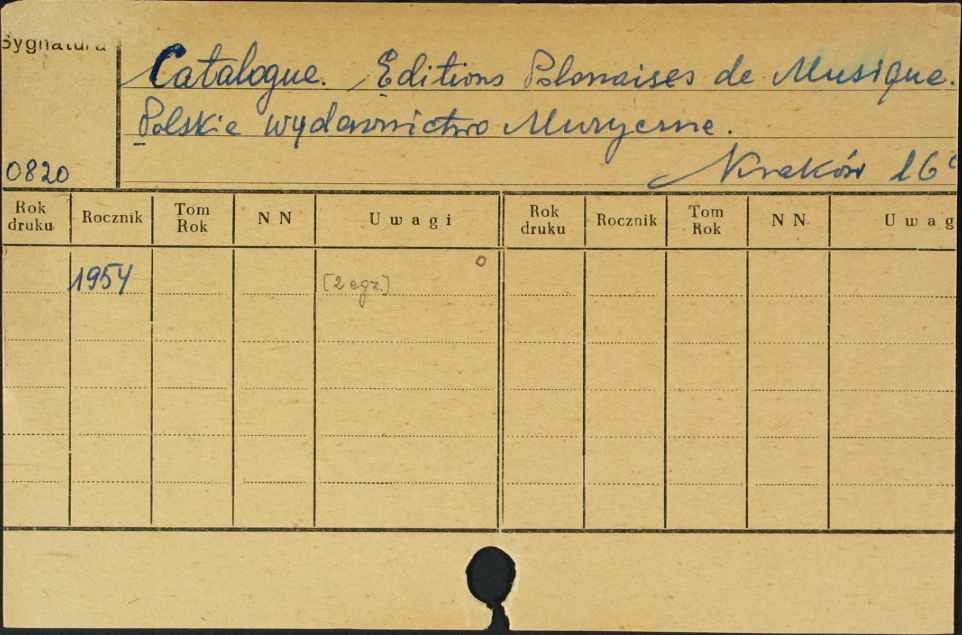 Sygnatura
Catalogue. Editions Polonaises de Musique.
Polskie wydawnictwo Muzyczne.
0820
Kraków 16°
Rok druku Rocznik Tom Rok NN Uwagi Rok druku Rocznik Tom Rok NN Uwag
1954 [2 egz.]